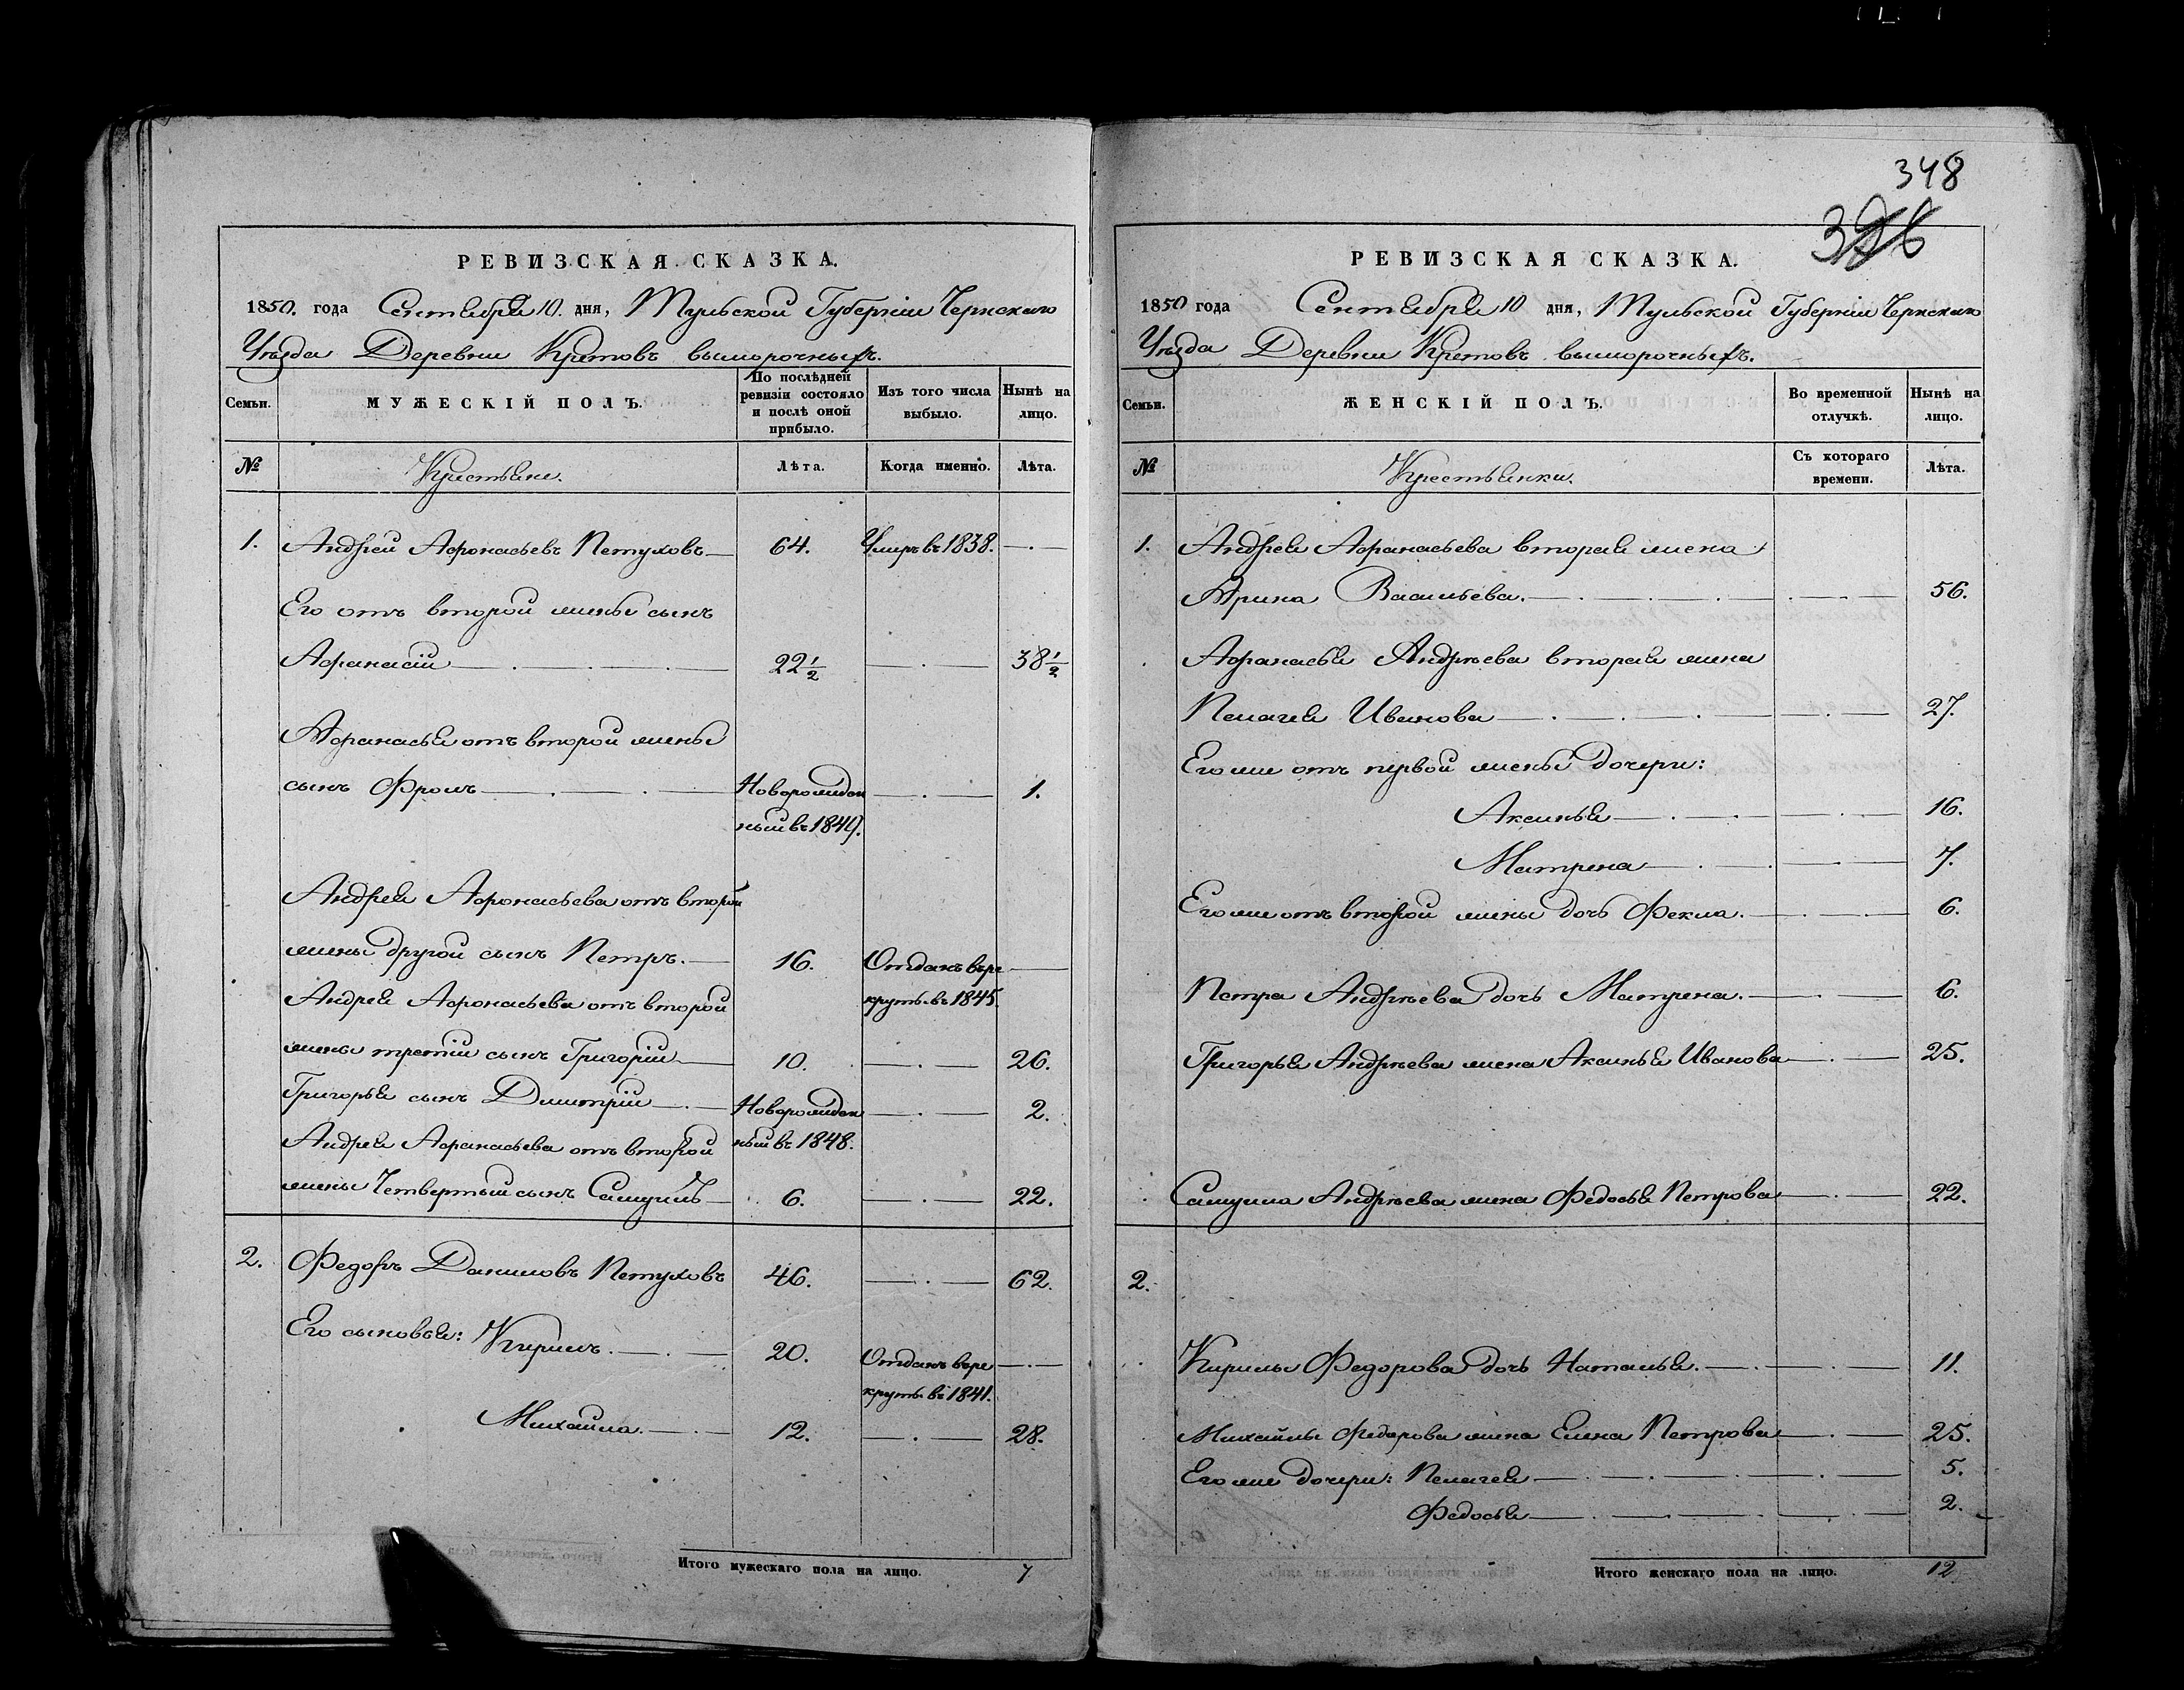 348
326
РЕВИЗСКАЯ СКАЗКА.
1850. года Сентября 10. дня, Тульской Губерніи Чернскаго
Уѣзда Деревни Кретовъ выморочныхъ.
Семьи.
МУЖЕСКІЙ ПОЛЪ.
По послѣдней ревизіи состояло и послѣ оной прибыло.
Изъ того числа выбыло.
Нынѣ на лицо.
№
Крестьяне.
Лѣта.
Когда именно.
Лѣта.
1. Андрей Афонасьевъ Петуховъ 64. Умеръ въ 1838.
Его отъ второй жены сынъ
Афанасій 22 1/2 38 1/2
Афанасья отъ второй жены
сынъ Фролъ Новорожден 1.
ный въ 1849.
Андрея Афонасьева отъ второй
жены другой сынъ Петръ. 16. Отданъ въ ре
Андрея Афонасьева отъ второй круты въ 1845.
жены третій сынъ Григорій 10. 26.
Григорья сынъ Дмитрій Новорожден 2.
Андрея Афанасьева отъ второй ный въ 1848.
жены Четвертый сынъ Самуилъ 6. 22.
2. Федоръ Даниловъ Петуховъ 46. 62.
Его сыновья: Кирилъ. 20. Отданъ въ ре
круты въ 1841.
Михайла. 12. 28.
Итого мужескаго пола на лицо. 7
РЕВИЗСКАЯ СКАЗКА.
1850 года Сентября 10 дня, Тульской Губерніи Чернскаго
Уѣзда Деревни Кретовъ выморочныхъ.
Семьи.
ЖЕНСКІЙ ПОЛЪ.
Во временной отлучкѣ.
Нынѣ на лицо.
№
Крестьянки.
Съ котораго времени.
Лѣта.
1. Андрея Афанасьева вторая жена
Арина Васильева. 56.
Афанасья Андрѣева вторая жена
Пелагея Иванова 27.
Его же отъ первой жены дочери:
Аксинья 16.
Матрена 7.
Его же отъ второй жены дочь Фекла. 6.
Петра Андрѣева дочь Матрена. 6.
Григорья Андрѣева жена Аксинья Иванова 25.
Самуила Андрѣева жена Федосья Петрова 22.
2.
Кирилы Федорова дочь Наталья. 11.
Михайлы Федорова жена Елена Петрова 25.
Его же дочери: Пелагея 5.
Федосья 2.
Итого женскаго пола на лицо. 12